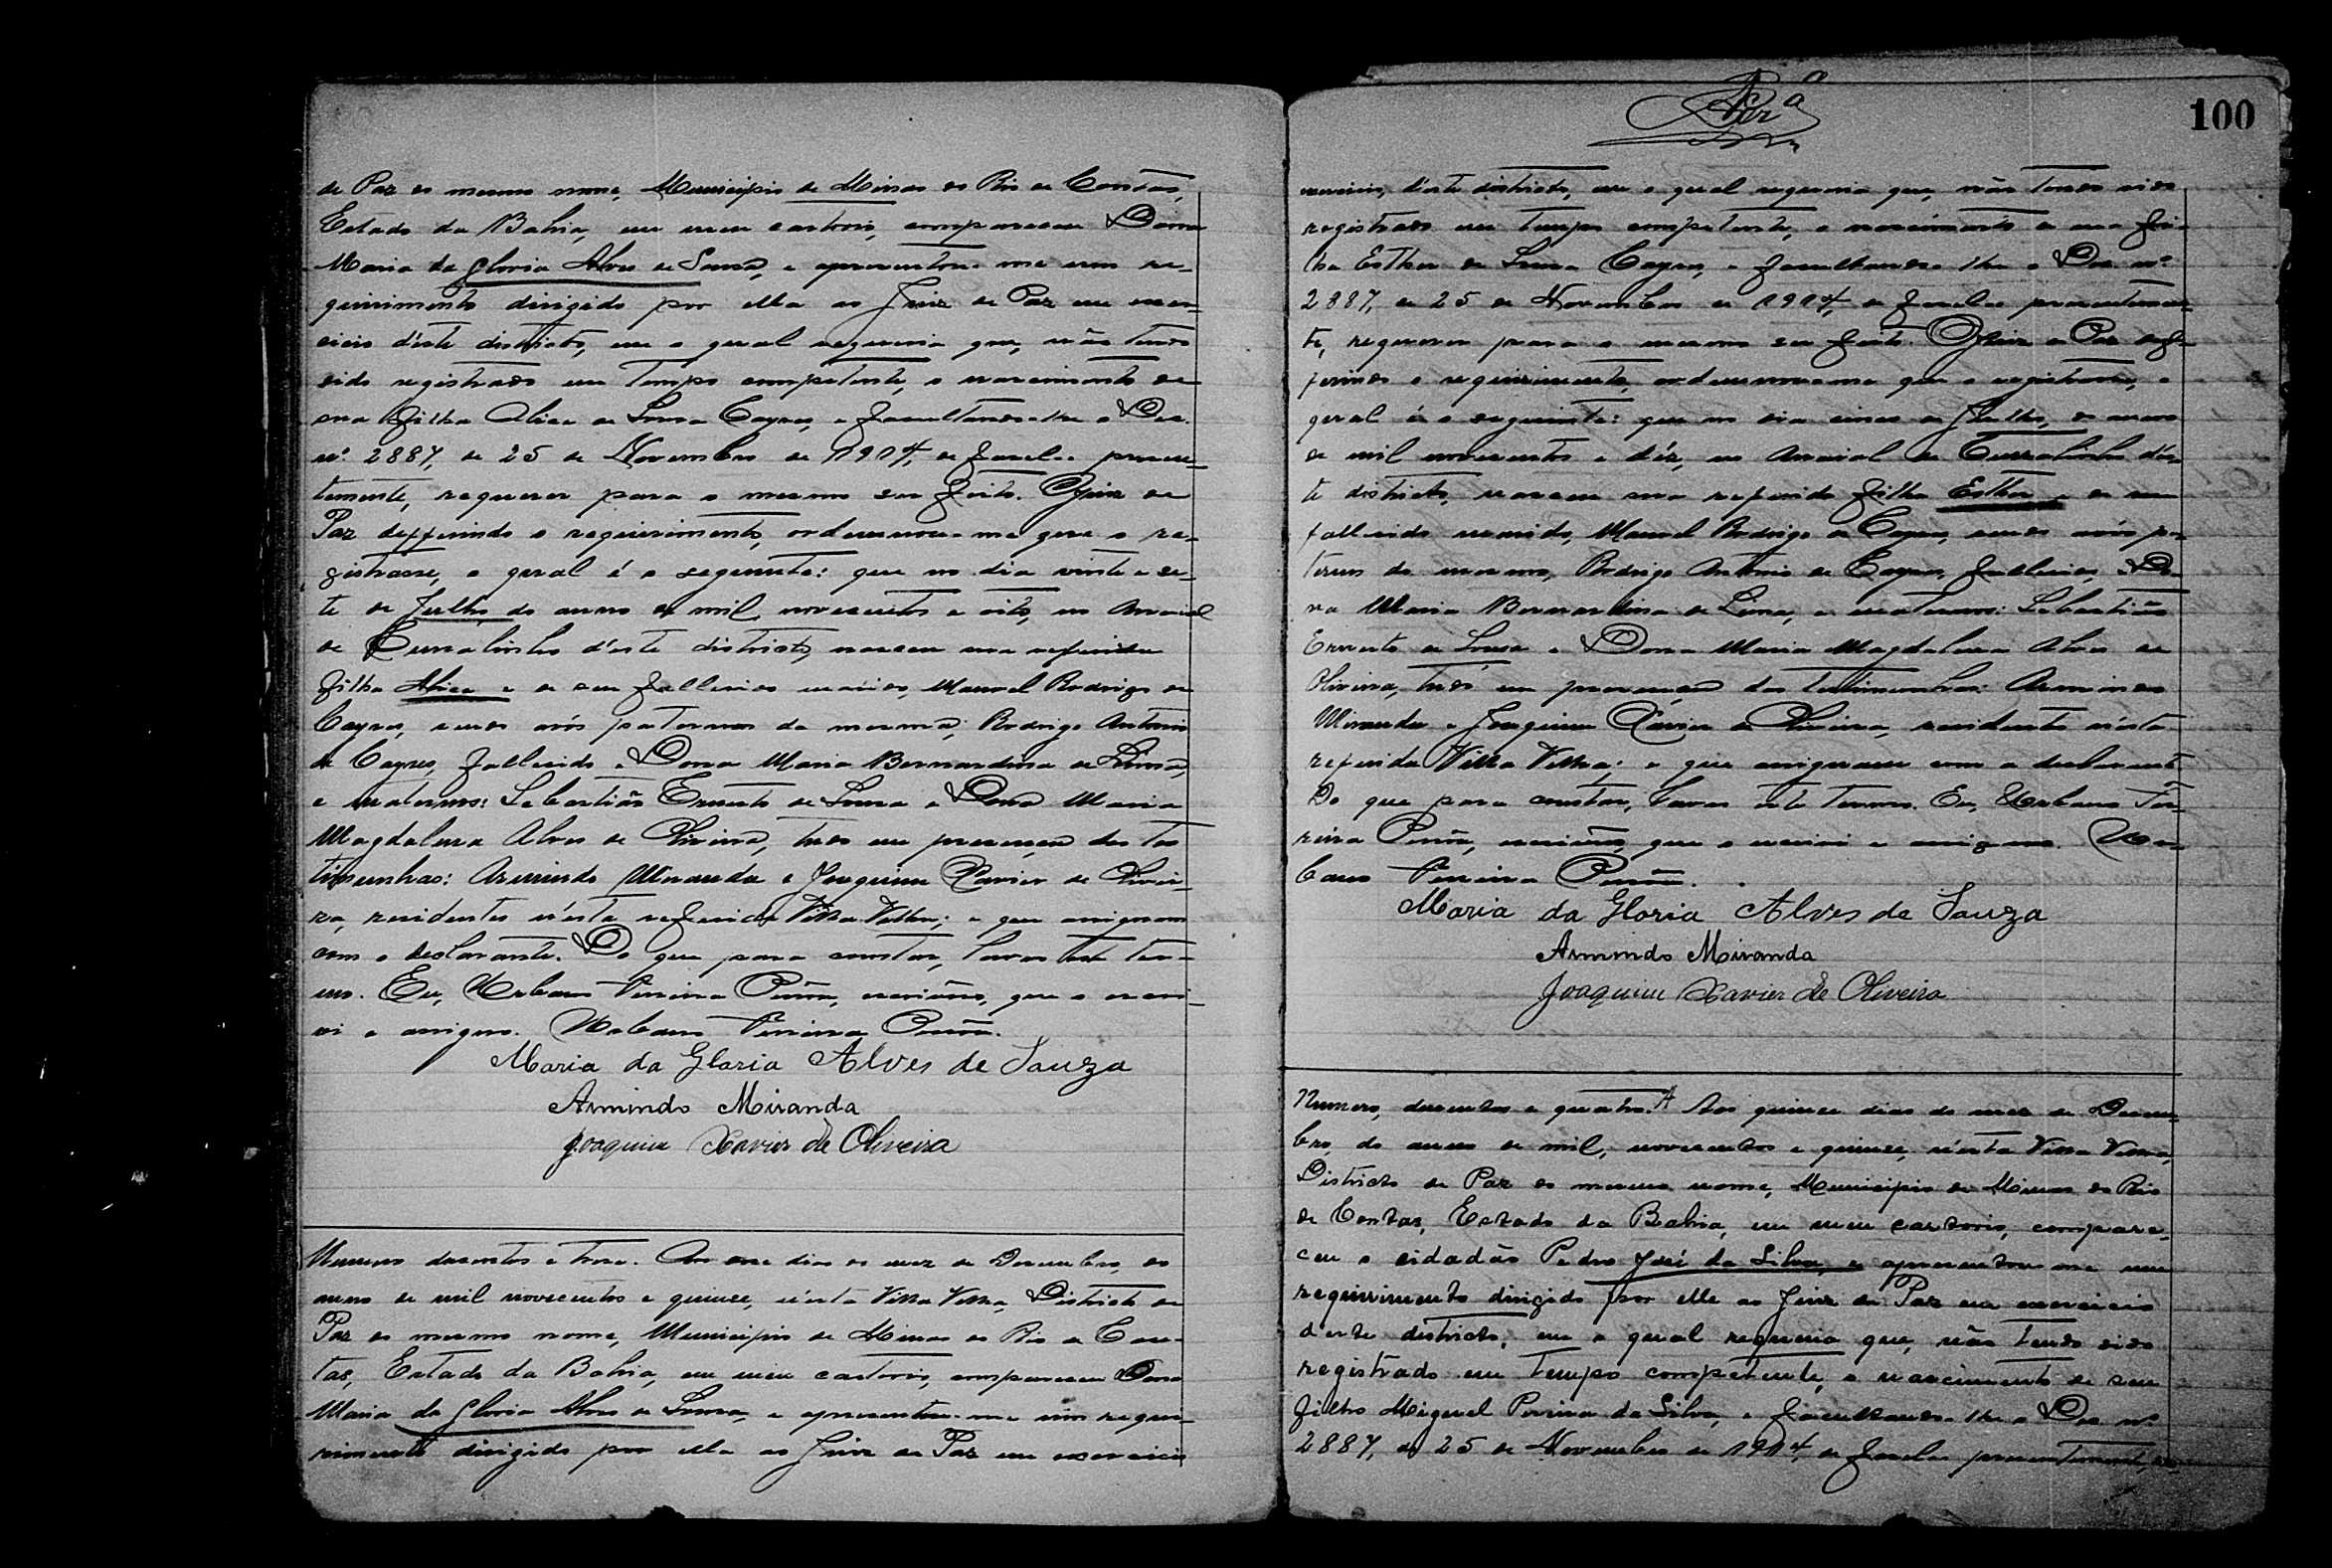 de Paz do mesmo nome, Municipio de Minas do Rio de Contas,
Estado da Bahia, em meu cartorio, compareceu Dona
Maria da Gloria Alves de Sousa, e apresentou-me um re-
querimento dirigido por ella ao Juiz de Paz em exer-
cicio d'este districto, em o qual requeria que, não tendo
sido registrado em tempo competente, o nascimento de
sua filha Alice de Sousa Cayres, e facultando-lhe o Dec.
nº 2887, de 25 de Novembro de 1914, de fazel-o presen-
temente, requerer para o mesmo ser feito. O Juiz de
Paz defferindo o requerimento, ordennou-me que o re-
gistrasse, o qual é o seguinte: que no dia vinte e se-
te de Julho do anno de mil novecentos e oito, no Arraial
de Curralinho d'este districto, nasceu sua referida
filha Alice e de seu fallecido marido, Manoel Rodrigo de
Cayres, sendo avós paternos da mesma; Rodrigo Antonio
de Cayres, fallecido e Dona Maria Bernardina de Lima,
e maternos: Sebastião Ernesto de Sousa e Dona Maria
Magdalena Alves de Oliveira, tudo em presença das tes
timunhas: Armindo Miranda e Joaquim Xavier de Olivei-
ra, residentes n'esta referida Villa Velha; e que assignam
com o declarante. Do que para constar, lavro este ter-
mo. Eu, Urbano Pereira, escrivão, que o escre-
vi e assigno. Urbano Pereira
Maria da Gloria Alves de Souza
Armindo Miranda
Joaquim Xavier de Oliveira
Numero dusentos e tres. Aos onze dias do mez de Dezembro, do
anno de mil novecentos e quinze, n'esta Villa Velha, Districto de
Paz do mesmo nome, Municipio de Minas do Rio de Con-
tas, Estado da Bahia, em meu cartorio, compareceu Dona
Maria da Gloria Alves de Sousa, e apresentou-me um reque-
rimento dirigido por ella ao Juiz de Paz em exercicio
100
exercicio, d'este districto, em o qual requeria que, não tendo sido
registrado em tempo competente, o nascimento de sua fi-
lha Esther de Sousa Cayres, e facultando-lhe o Dec. nº
2887, de 25 de Novembro de 1914, de fazel-o presentemen-
te, requerer para o mesmo ser feito. O Juiz de Paz def-
ferindo o requerimento, ordennou-me que o registrasse, o
qual é o seguinte: que no dia cinco de Julho, do anno
de mil novecentos e déz, no Arraial de Curralinho d'es-
te districto, nasceu sua referida filha Esther e de seu
fallecido marido, Manoel Rodrigo de Cayres, sendo avós pa-
ternos da mesma, Rodrigo Antonio de Cayres, fallecido, e Do-
na Maria Bernardina de Lima, e maternos: Sebastião
Ernesto de Sousa e Dona Maria Magdalena Alves de
Oliveira, tudo em presença das testimunhas: Armindo
Miranda e Joaquim Xavier de Oliveira, residentes n'esta
referida Villa Velha; e que assignam com a declarante
Do que para constar, lavro este termo. Eu, Urbano Pe-
reira, escrivão, que o escrevi e assigno. Ur-
bano Pereira
Maria da Gloria Alves de Souza
Armindo Miranda
Joaquim Xavier de Oliveira
Numero, dusentos e quatro. Aos quinze dias do mez de Dezem-
bro, do anno de mil, novecentos e quinze, n'esta Villa Velha,
Districto de Paz do mesmo nome, Municipio de Minas do Rio
de Contas, Estado da Bahia, em meu cartorio, compare-
ceu o cidadão Pedro José da Silva, e apresentou-me um
requerimento dirigido por elle ao Juiz de Paz em exercicio
d'este districto, em o qual requeria que, não tendo sido
registrado em tempo competente, o nascimento de seu
filho Miguel Pereira da Silva, e facultando-lhe o Dec nº
2887, de 25 de Novembro de 1914, de fazel-o presentemente,